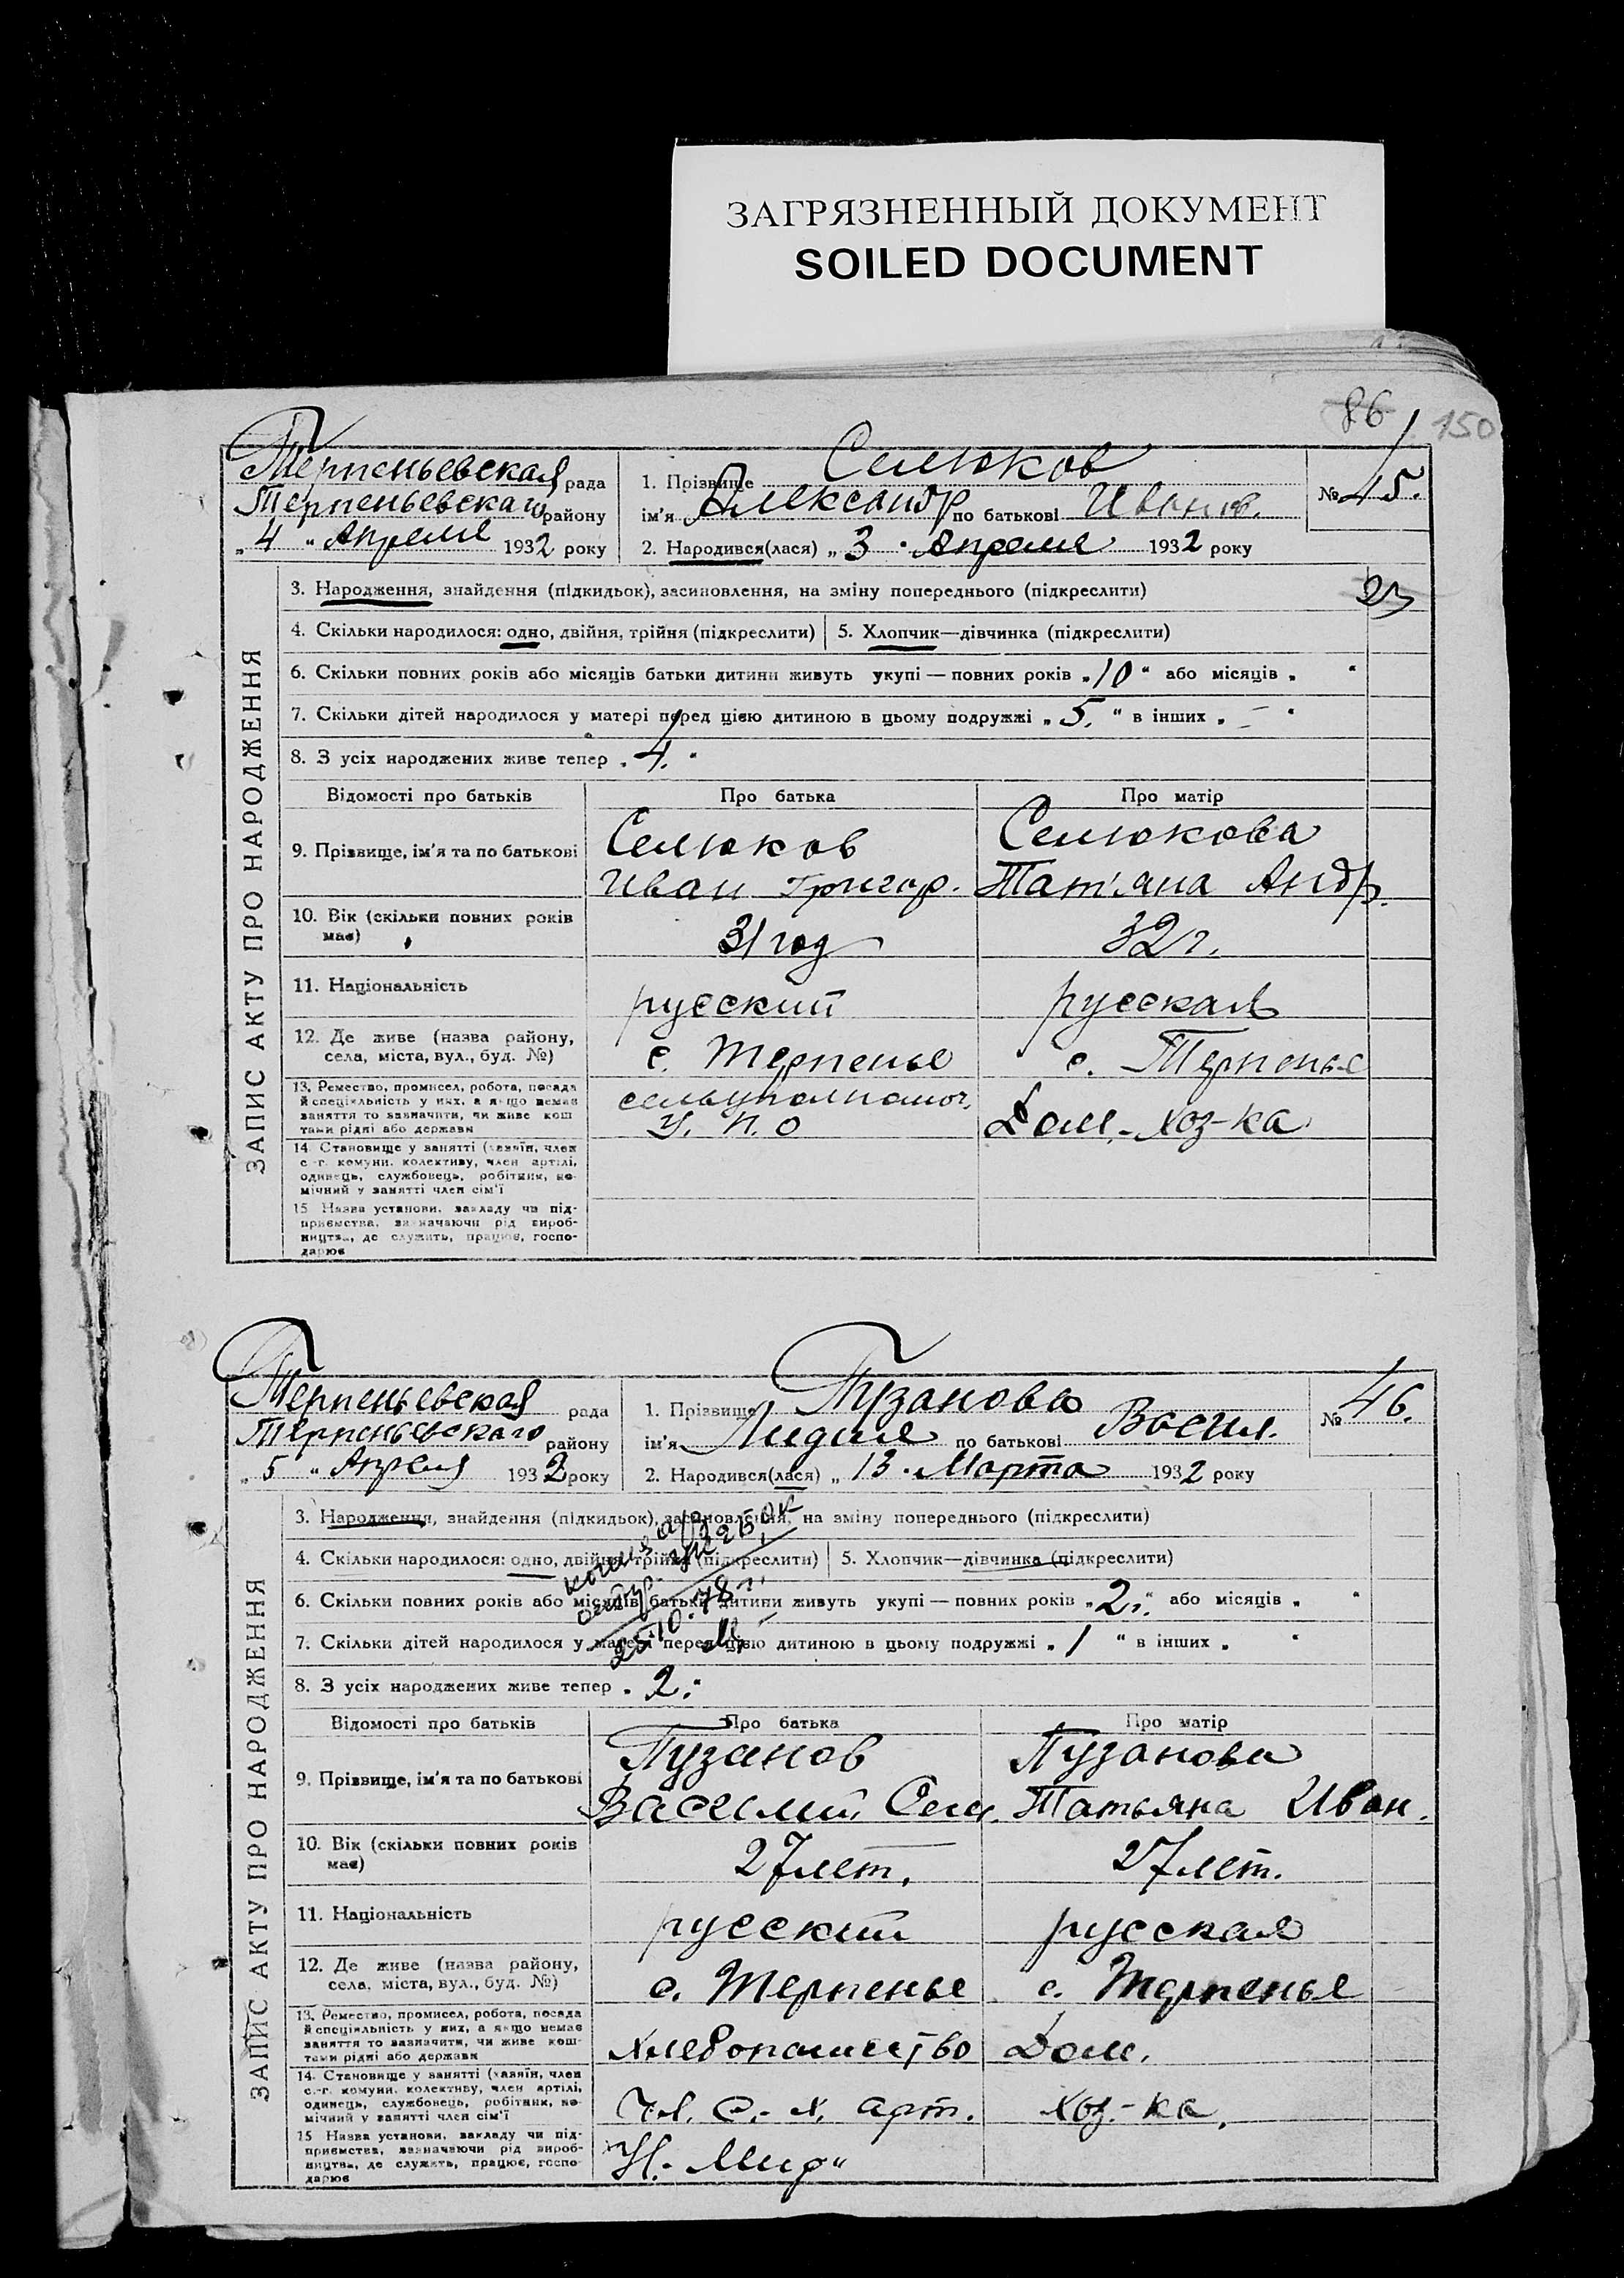 ЗАГРЯЗНЕННЫЙ ДОКУМЕНТ
SOILED DOCUMENT
86
150
Терпеньевская рада
Терпеньевского району
„4“ Апреля 1932 року
1. Прізвище Селюков
ім'я Александр по батькові Иванов.
2. Народився(лася) „3“ Апреля 1932 року
№ 45.
ЗАПИС АКТУ ПРО НАРОДЖЕННЯ
3. Народження, знайдення (підкидьок), засиновлення, на зміну попереднього (підкреслити)
4. Скільки народилося: одно, двійня, трійня (підкреслити) 5. Хлопчик—дівчинка (підкреслити)
6. Скільки повних років або місяців батьки дитини живуть укупі — повних років „10“ або місяців „ “
7. Скільки дітей народилося у матері перед цією дитиною в цьому подружжі „5.“ в інших „–“
8. З усіх народжених живе тепер „4.“
Відомості про батьків Про батька Про матір
9. Прізвище, ім'я та по батькові
Селюков
Иван Григор.
Селюкова
Тат'яна Андр.
10. Вік (скільки повних років має)
31 год
32 г.
11. Національність
русский
русская
12. Де живе (назва району,
села, міста, вул., буд. №)
с. Терпенье
с. Терпенье
13. Ремество, промисел, робота, посада
й спеціяльність у них, а якщо немає
заняття то зазначити, чи живе кош
тами рідні або держави
У. П. О
Дом.-хоз-ка
14. Становище у занятті (хазяїн, член
с.-г. комуни, колективу, член артілі,
одинець, службовець, робітник, по-
мічний у занятті член сім'ї
15 Назва установи, закладу чи під-
приємства, зазначаючи рід вироб-
ництва, де служить, працює, госпо-
дарює
Терпеньевская рада
Терпеньевского району
„5“ Апреля 1932 року
1. Прізвище Пузанова
ім'я Лидия по батькові Васил.
2. Народився(лася) „13“ Марта 1932 року
№ 46.
ЗАПИС АКТУ ПРО НАРОДЖЕННЯ
3. Народження, знайдення (підкидьок), засиновлення, на зміну попереднього (підкреслити)
4. Скільки народилося: одно, двійня, трійня (підкреслити) 5. Хлопчик—дівчинка (підкреслити)
6. Скільки повних років або місяців батьки дитини живуть укупі — повних років „2г.“ або місяців „ “
7. Скільки дітей народилося у матері перед цією дитиною в цьому подружжі „1“ в інших „ “
8. З усіх народжених живе тепер „2.“
Відомості про батьків Про батька Про матір
9. Прізвище, ім'я та по батькові
Пузанов
Василий Сем.
Пузанова
Татьяна Иван.
10. Вік (скільки повних років має)
27 лет.
27 лет.
11. Національність
русский
русская
12. Де живе (назва району,
села, міста, вул., буд. №)
с. Терпенье
с. Терпенье
13. Ремество, промисел, робота, посада
й спеціяльність у них, а якщо немає
заняття то зазначити, чи живе кош-
тами рідні або держави
Хлебопашество
Дом.
14. Становище у занятті (хазяїн, член
с.-г. комуни, колективу, член артілі,
одинець, службовець, робітник, по-
мічний у занятті член сім'ї
Чл. с.-х. арт.
хоз.-ка.
15 Назва установи, закладу чи під-
приємства, зазначаючи рід вироб-
ництва, де служить, працює, госпо-
дарює
„Н.-Мир“